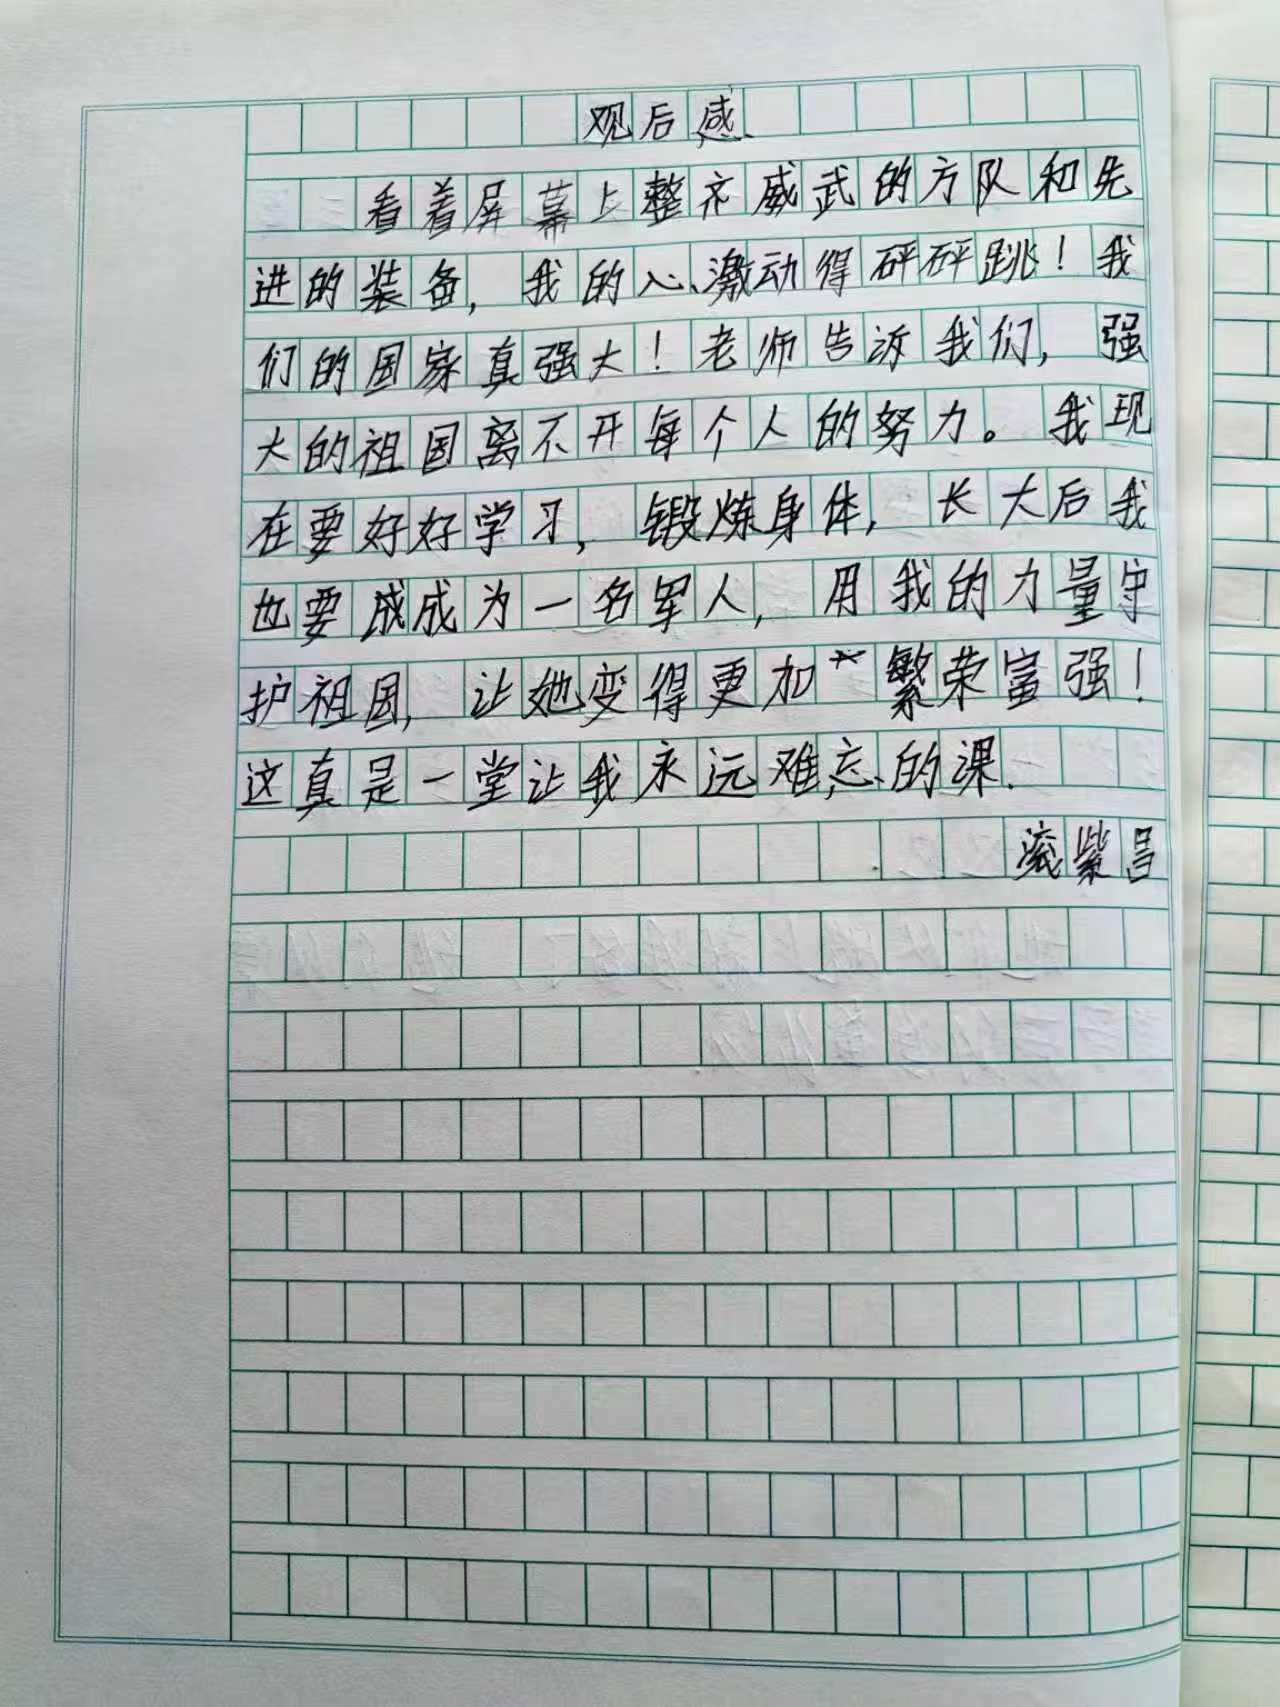 观后感
看着屏幕上整齐威武的方队和先
进的装备，我的心激动得砰砰跳！我
们的国家真强大！老师告诉我们，强
大的祖国离不开每个人的努力。我现
在要好好学习，锻炼身体，长大后我
也要成成为一名军人，用我的力量守
护祖国，让她变得更加繁荣富强！
这真是一堂让我永远难忘的课.
紫昌